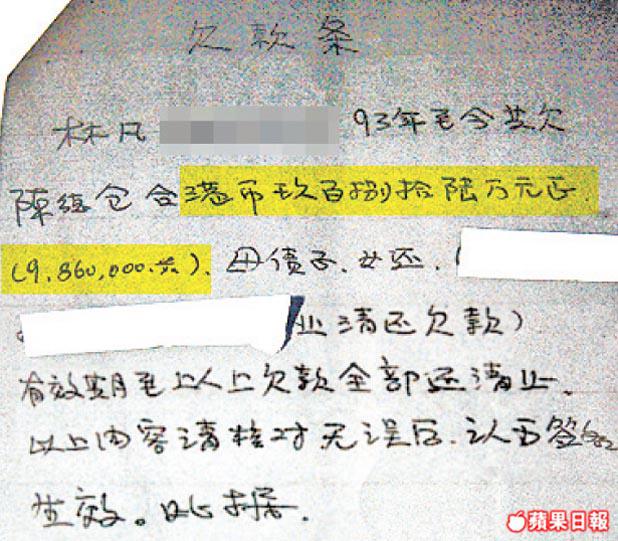 欠款条
林凡 93年至今共欠
陳 仓 合港币玖百捌拾陆万元正
(9,860,000.元). 母债子.女还.(
止清还欠款)
有效期至上人上欠款全部还清止.
以上内容清核对无误后.认可签
生效。此据.
蘋果日報